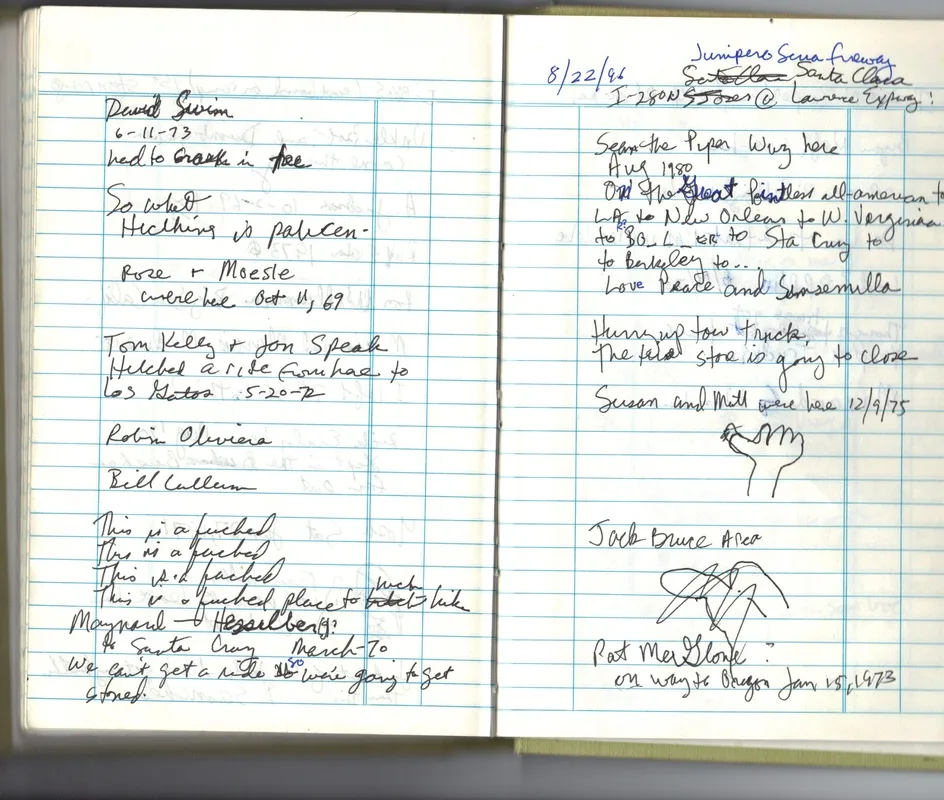 David Swim
6-11-73
had to break in
So what
Hitching is paticen-
Rose + Moesle
were here Oct 11, 69
Tom Kelly + Jon Speak
Hitched a ride from here to
Los Gatos 5-20-72
Robin Oliviera
Bill Cullum
This is a fucked
This is a fucked
This is a fucked
This is a fucked place to hitch hike
Maynard Hesselberg?
to Santa Cruz March-70
We can't get a ride so we're going to get
stoned.
Junipero Serra freeway
8/22/96 Santa Clara
I-280N @ Lawrence Expwy:
Sean the Piper Wuz here
Aug 1980
On the Great Pointless all-american to
LA to New Orleans to W. Verginian
to BO_L_ER to Sta Cruz to
to Berkeley to...
Love Peace and Sensemilla
Hurry up tow truck,
The store is going to close
Susan and Milt were here 12/9/75
Jack Bruce Area
Pat McGlone ?
on way to Oregon Jan 15, 1973